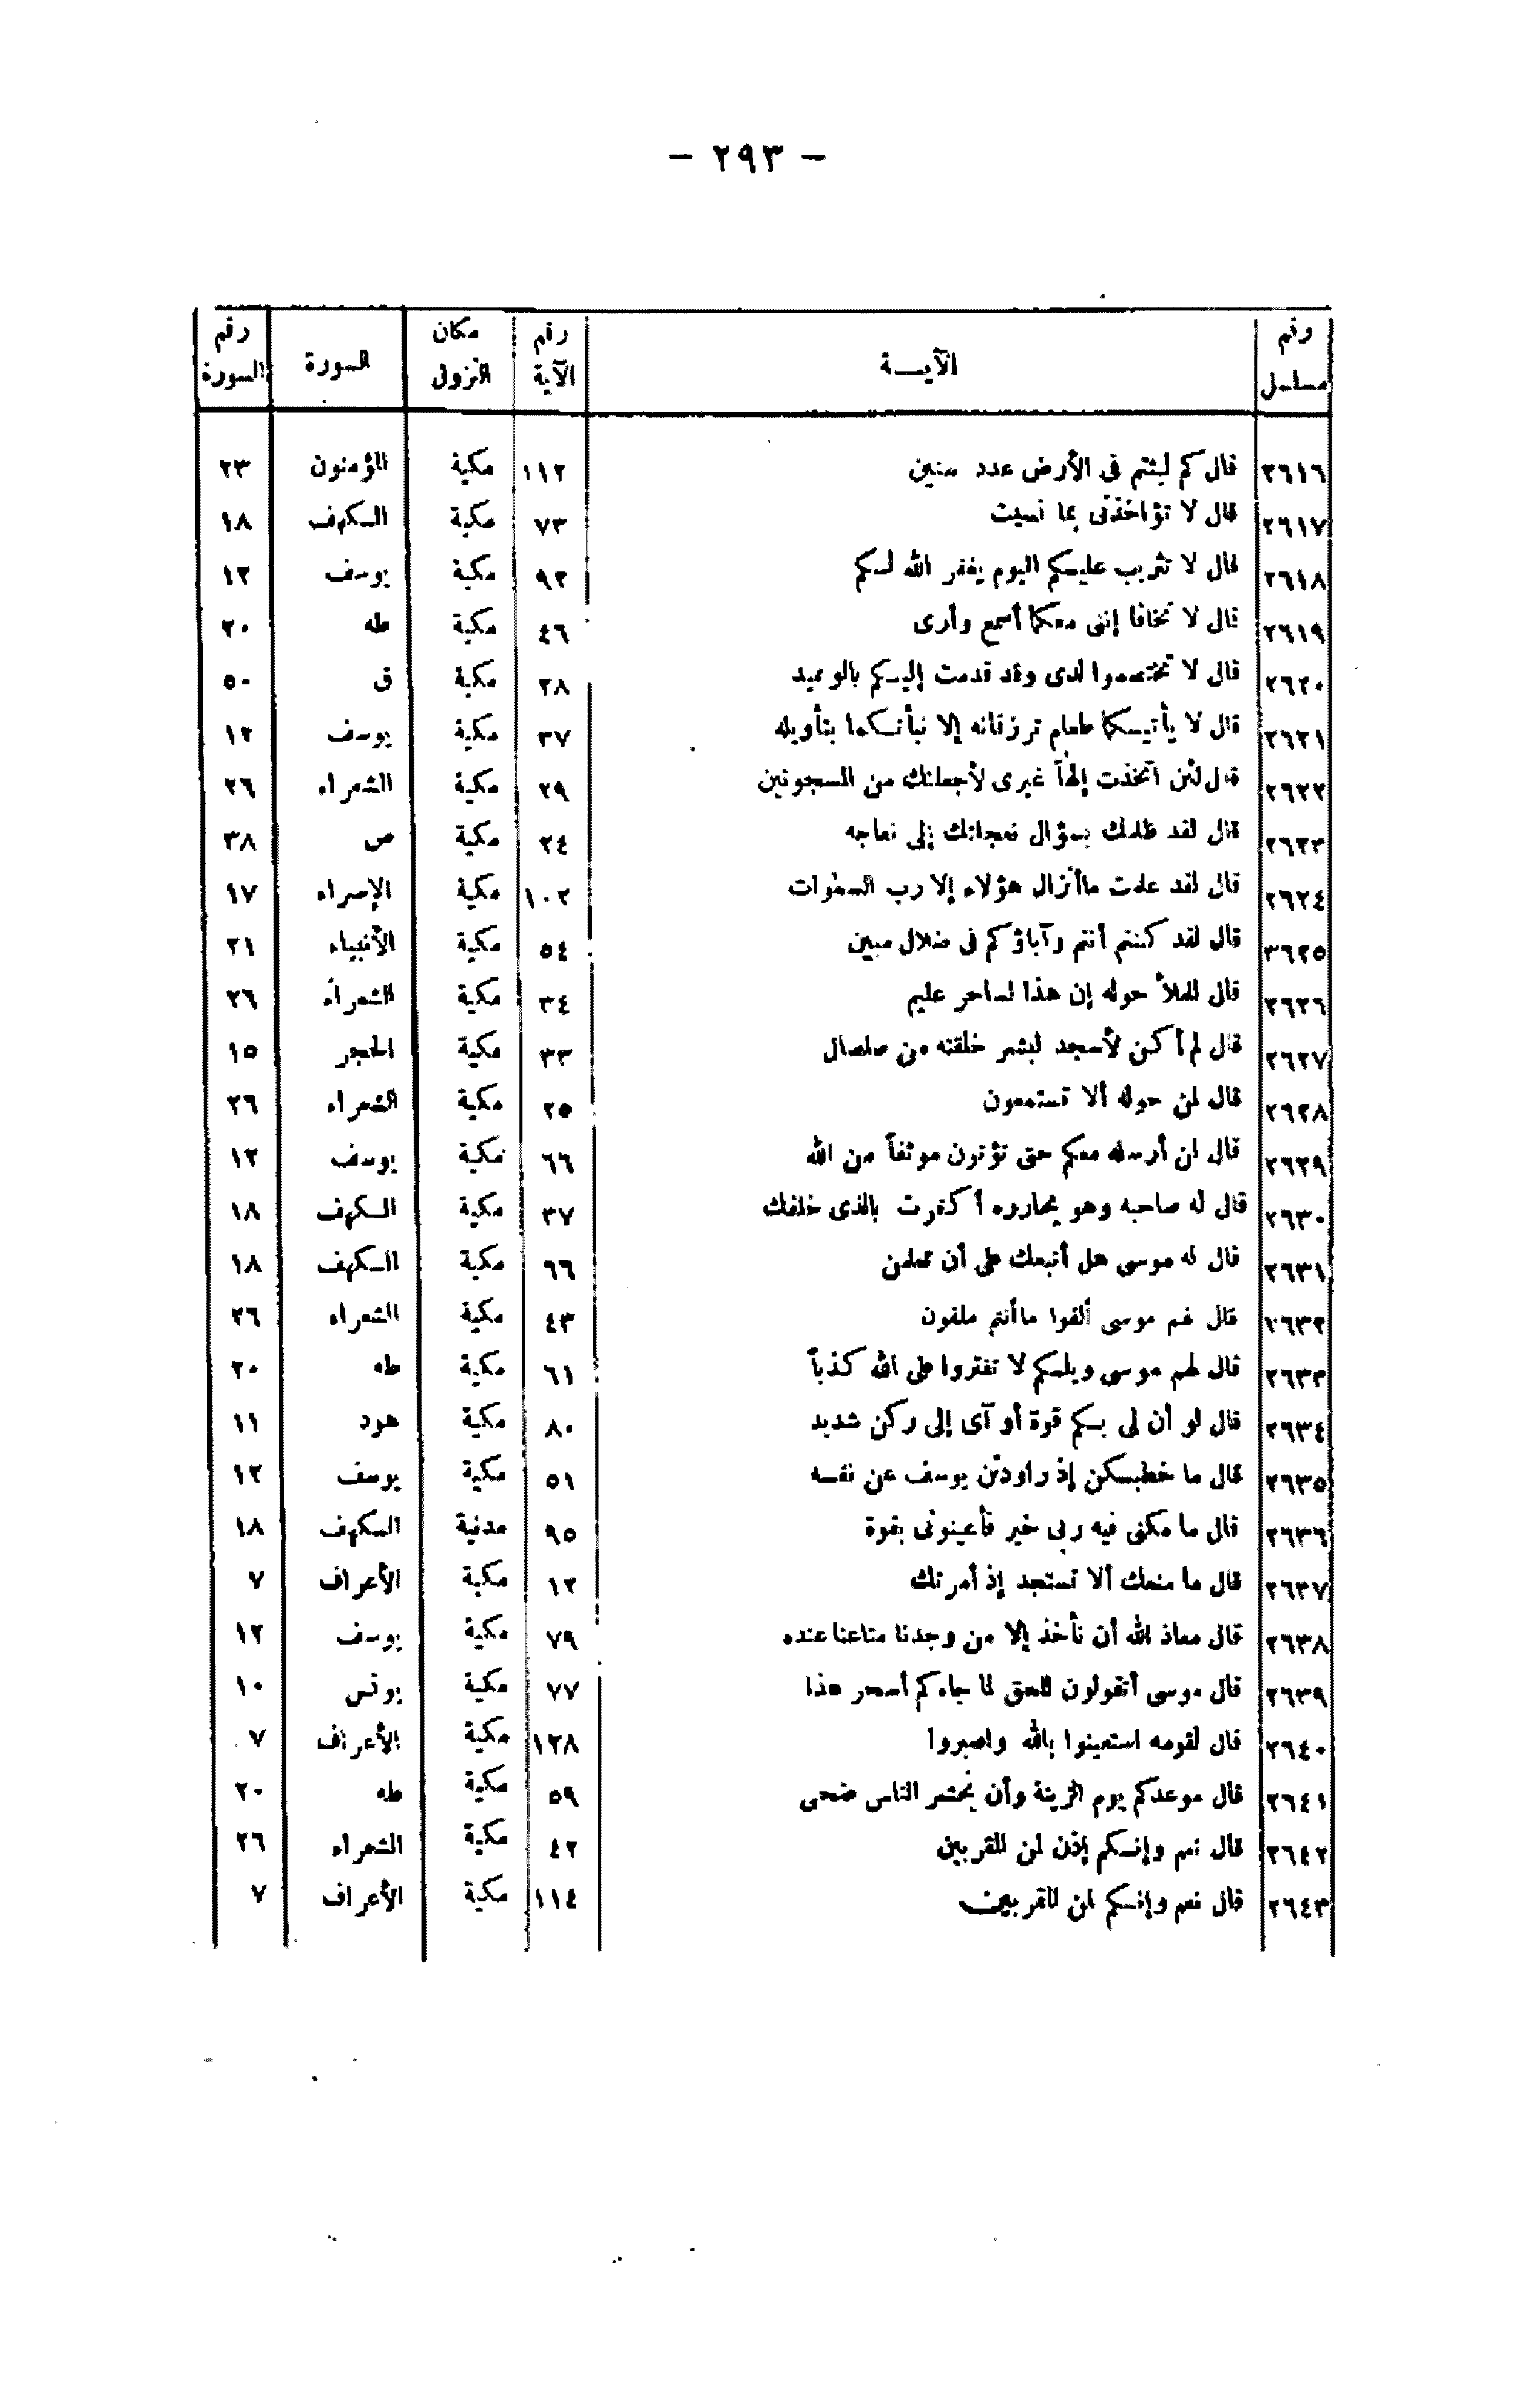 — ٢٩٣ —
رقم مسلسل | الآيـــة | رقم الآية | مكان النزول | السورة | رقم السورة
٢٦١٦ قال كم لبثتم فى الأرض عدد سنين ١١٢ مكية المؤمنون ٢٣
٢٦١٧ قال لا تؤاخذنى بما نسيت ٧٣ مكية الكهف ١٨
٢٦١٨ قال لا تثريب عليكم اليوم يغفر الله لكم ٩٢ مكية يوسف ١٢
٢٦١٩ قال لا تخافا إننى معكما أسمع وأرى ٤٦ مكية طه ٢٠
٢٦٢٠ قال لا تختصموا لدى وقد قدمت إليكم بالوعيد ٢٨ مكية ق ٥٠
٢٦٢١ قال لا يأتيكما طعام ترزقانه إلا نبأتكما بتأويله ٣٧ مكية يوسف ١٢
٢٦٢٢ قال لئن اتخذت إلهاً غيرى لأجعلنك من المسجونين ٢٩ مكية الشعراء ٢٦
٢٦٢٣ قال لقد ظلمك بسؤال نعجتك إلى نعاجه ٢٤ مكية ص ٣٨
٢٦٢٤ قال لقد علمت ماأنزل هؤلاء إلا رب السموات ١٠٢ مكية الإسراء ١٧
٣٦٢٥ قال لقد كنتم أنتم وآباؤكم فى ضلال مبين ٥٤ مكية الأنبياء ٢١
٢٦٢٦ قال للملأ حوله إن هذا لساحر عليم ٣٤ مكية الشعراء ٢٦
٢٦٢٧ قال لم أكن لأسجد لبشر خلقته من صلصال ٣٣ مكية الحجر ١٥
٢٦٢٨ قال لمن حوله ألا تستمعون ٢٥ مكية الشعراء ٢٦
٢٦٢٩ قال لن أرسله معكم حتى تؤتون موثقاً من الله ٦٦ مكية يوسف ١٢
٢٦٣٠ قال له صاحبه وهو يحاوره أكفرت بالذى خلقك ٣٧ مكية الكهف ١٨
٢٦٣١ قال له موسى هل أتبعك على أن تعلمن ٦٦ مكية الكهف ١٨
٢٦٣٢ قال لهم موسى ألقوا ماأنتم ملقون ٤٣ مكية الشعراء ٢٦
٢٦٣٣ قال لهم موسى ويلكم لا تفتروا على الله كذباً ٦١ مكية طه ٢٠
٢٦٣٤ قال لو أن لى بكم قوة أو آى إلى ركن شديد ٨٠ مكية هود ١١
٢٦٣٥ قال ما خطبكن إذ راودتن يوسف عن نفسه ٥١ مكية يوسف ١٢
٢٦٣٦ قال ما مكنى فيه ربى خير فأعينونى بقوة ٩٥ مدنية الكهف ١٨
٢٦٣٧ قال ما منعك ألا تستجد إذ أمرتك ١٢ مكية الأعراف ٧
٢٦٣٨ قال معاذ الله أن نأخذ إلا من وجدنا متاعنا عنده ٧٩ مكية يوسف ١٢
٢٦٣٩ قال موسى أتقولون للحق لما جاءكم أسحر هذا ٧٧ مكية يونس ١٠
٢٦٤٠ قال لقومه استعينوا بالله واصبروا ١٢٨ مكية الأعراف ٧
٢٦٤١ قال موعدكم يوم الزينة وأن يحشر الناس ضحى ٥٩ مكية طه ٢٠
٢٦٤٢ قال نعم وإنكم إذن لمن المقربين ٤٢ مكية الشعراء ٢٦
٢٦٤٣ قال نعم وإنكم لمن المقربين ١١٤ مكية الأعراف ٧